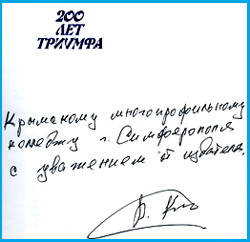 200
ЛЕТ
ТРИУМФА
Крымскому многопрофильному
колледжу г. Симферополя
с уважением от издателя.